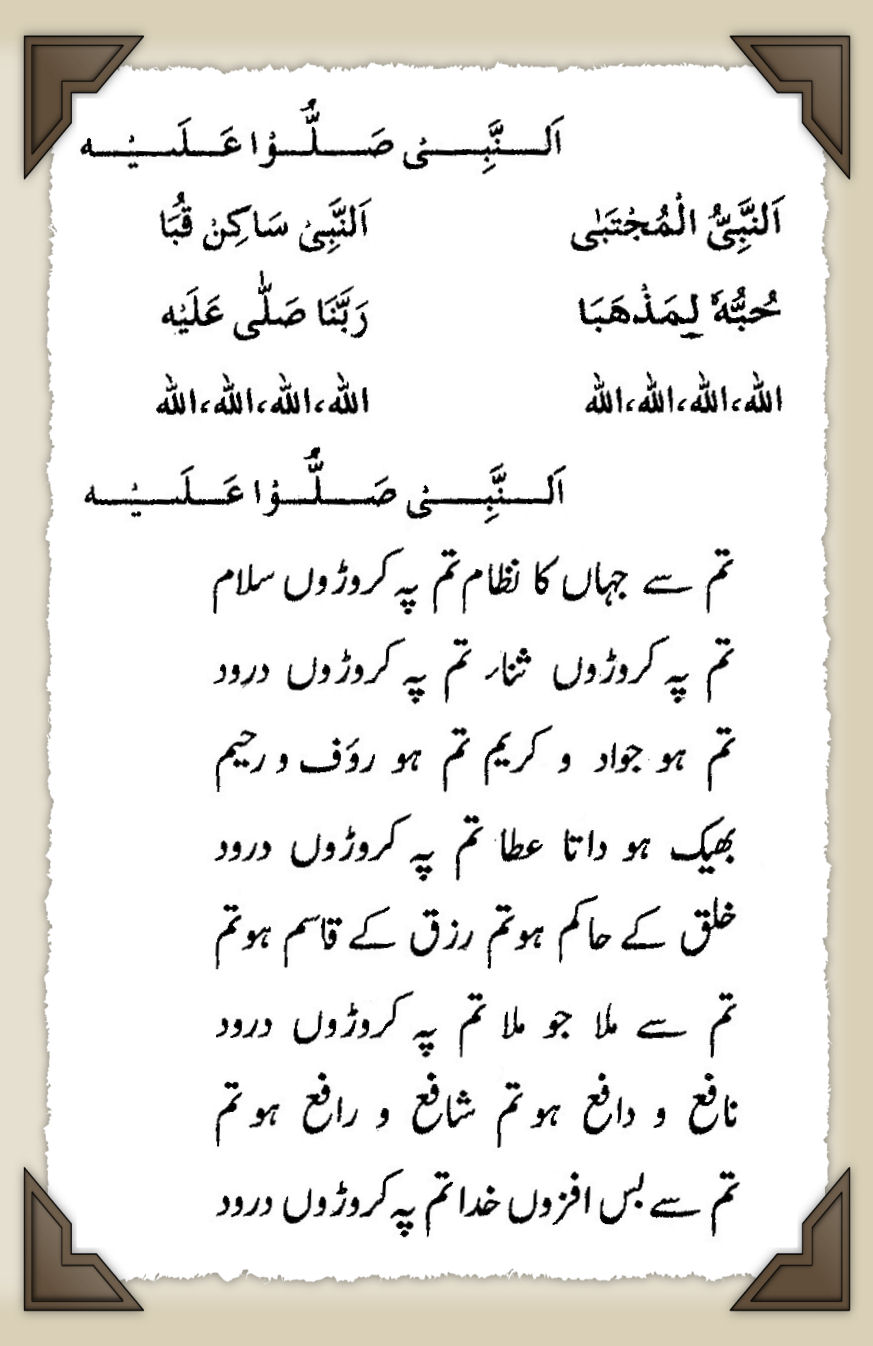 اَلنَّبِیْ صَلُّوْا عَلَیْه
اَلنَّبِیُّ الْمُجْتَبٰی اَلنَّبِیْ سَاکِنْ قُبَا
حُبُّهٗ لِمَذْهَبَا رَبَّنَا صَلّٰی عَلَیْه
اللّٰه،اللّٰه،اللّٰه،اللّٰه اللّٰه،اللّٰه،اللّٰه،اللّٰه
اَلنَّبِیْ صَلُّوْا عَلَیْه
تم سے جہاں کا نظام تم پہ کروڑوں سلام
تم پہ کروڑوں ثناء تم پہ کروڑوں درود
تم ہو جواد و کریم تم ہو روَف و رحیم
بھیک ہو داتا عطا تم پہ کروڑوں درود
خلق کے حاکم ہو تم رزق کے قاسم ہو تم
تم سے ملا جو ملا تم پہ کروڑوں درود
نافع و دافع ہو تم شافع و رافع ہو تم
تم سے بس افزوں خدا تم پہ کروڑوں درود